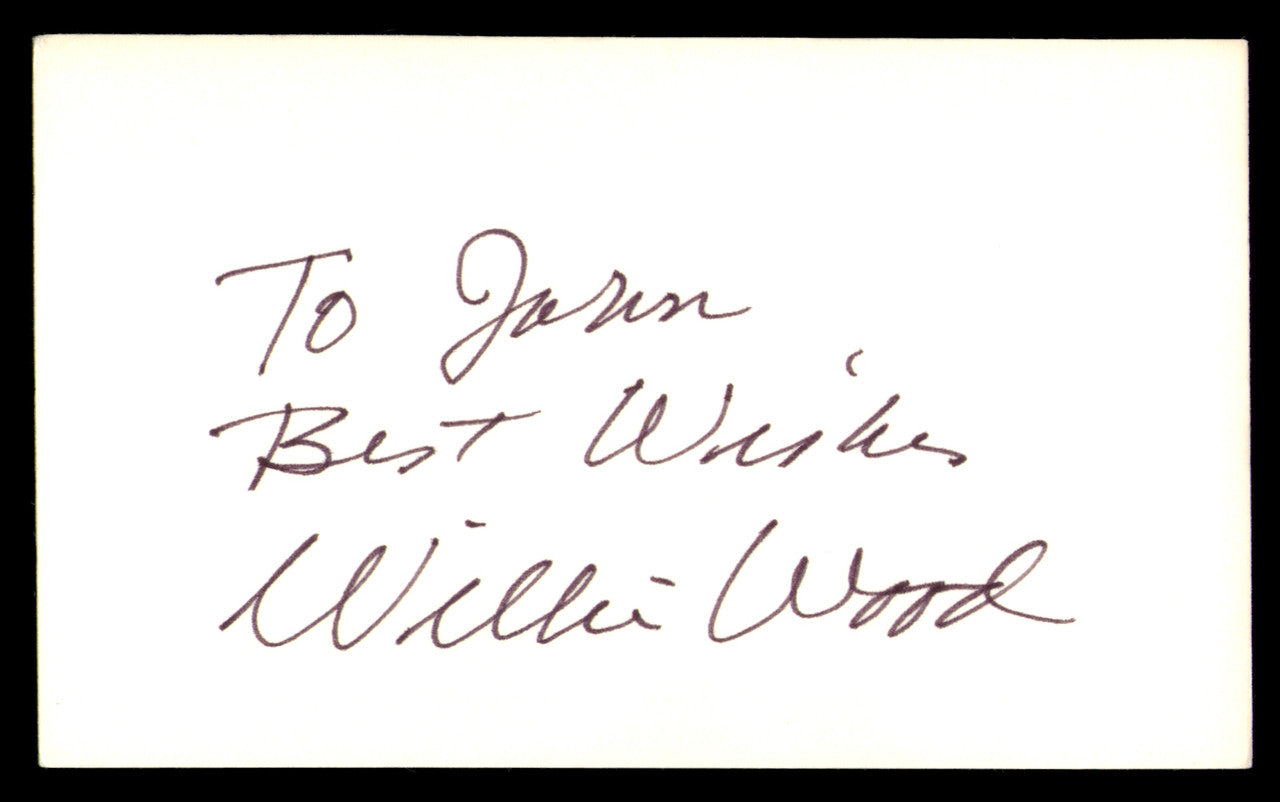 To John
Best Wishes
Willie Wood